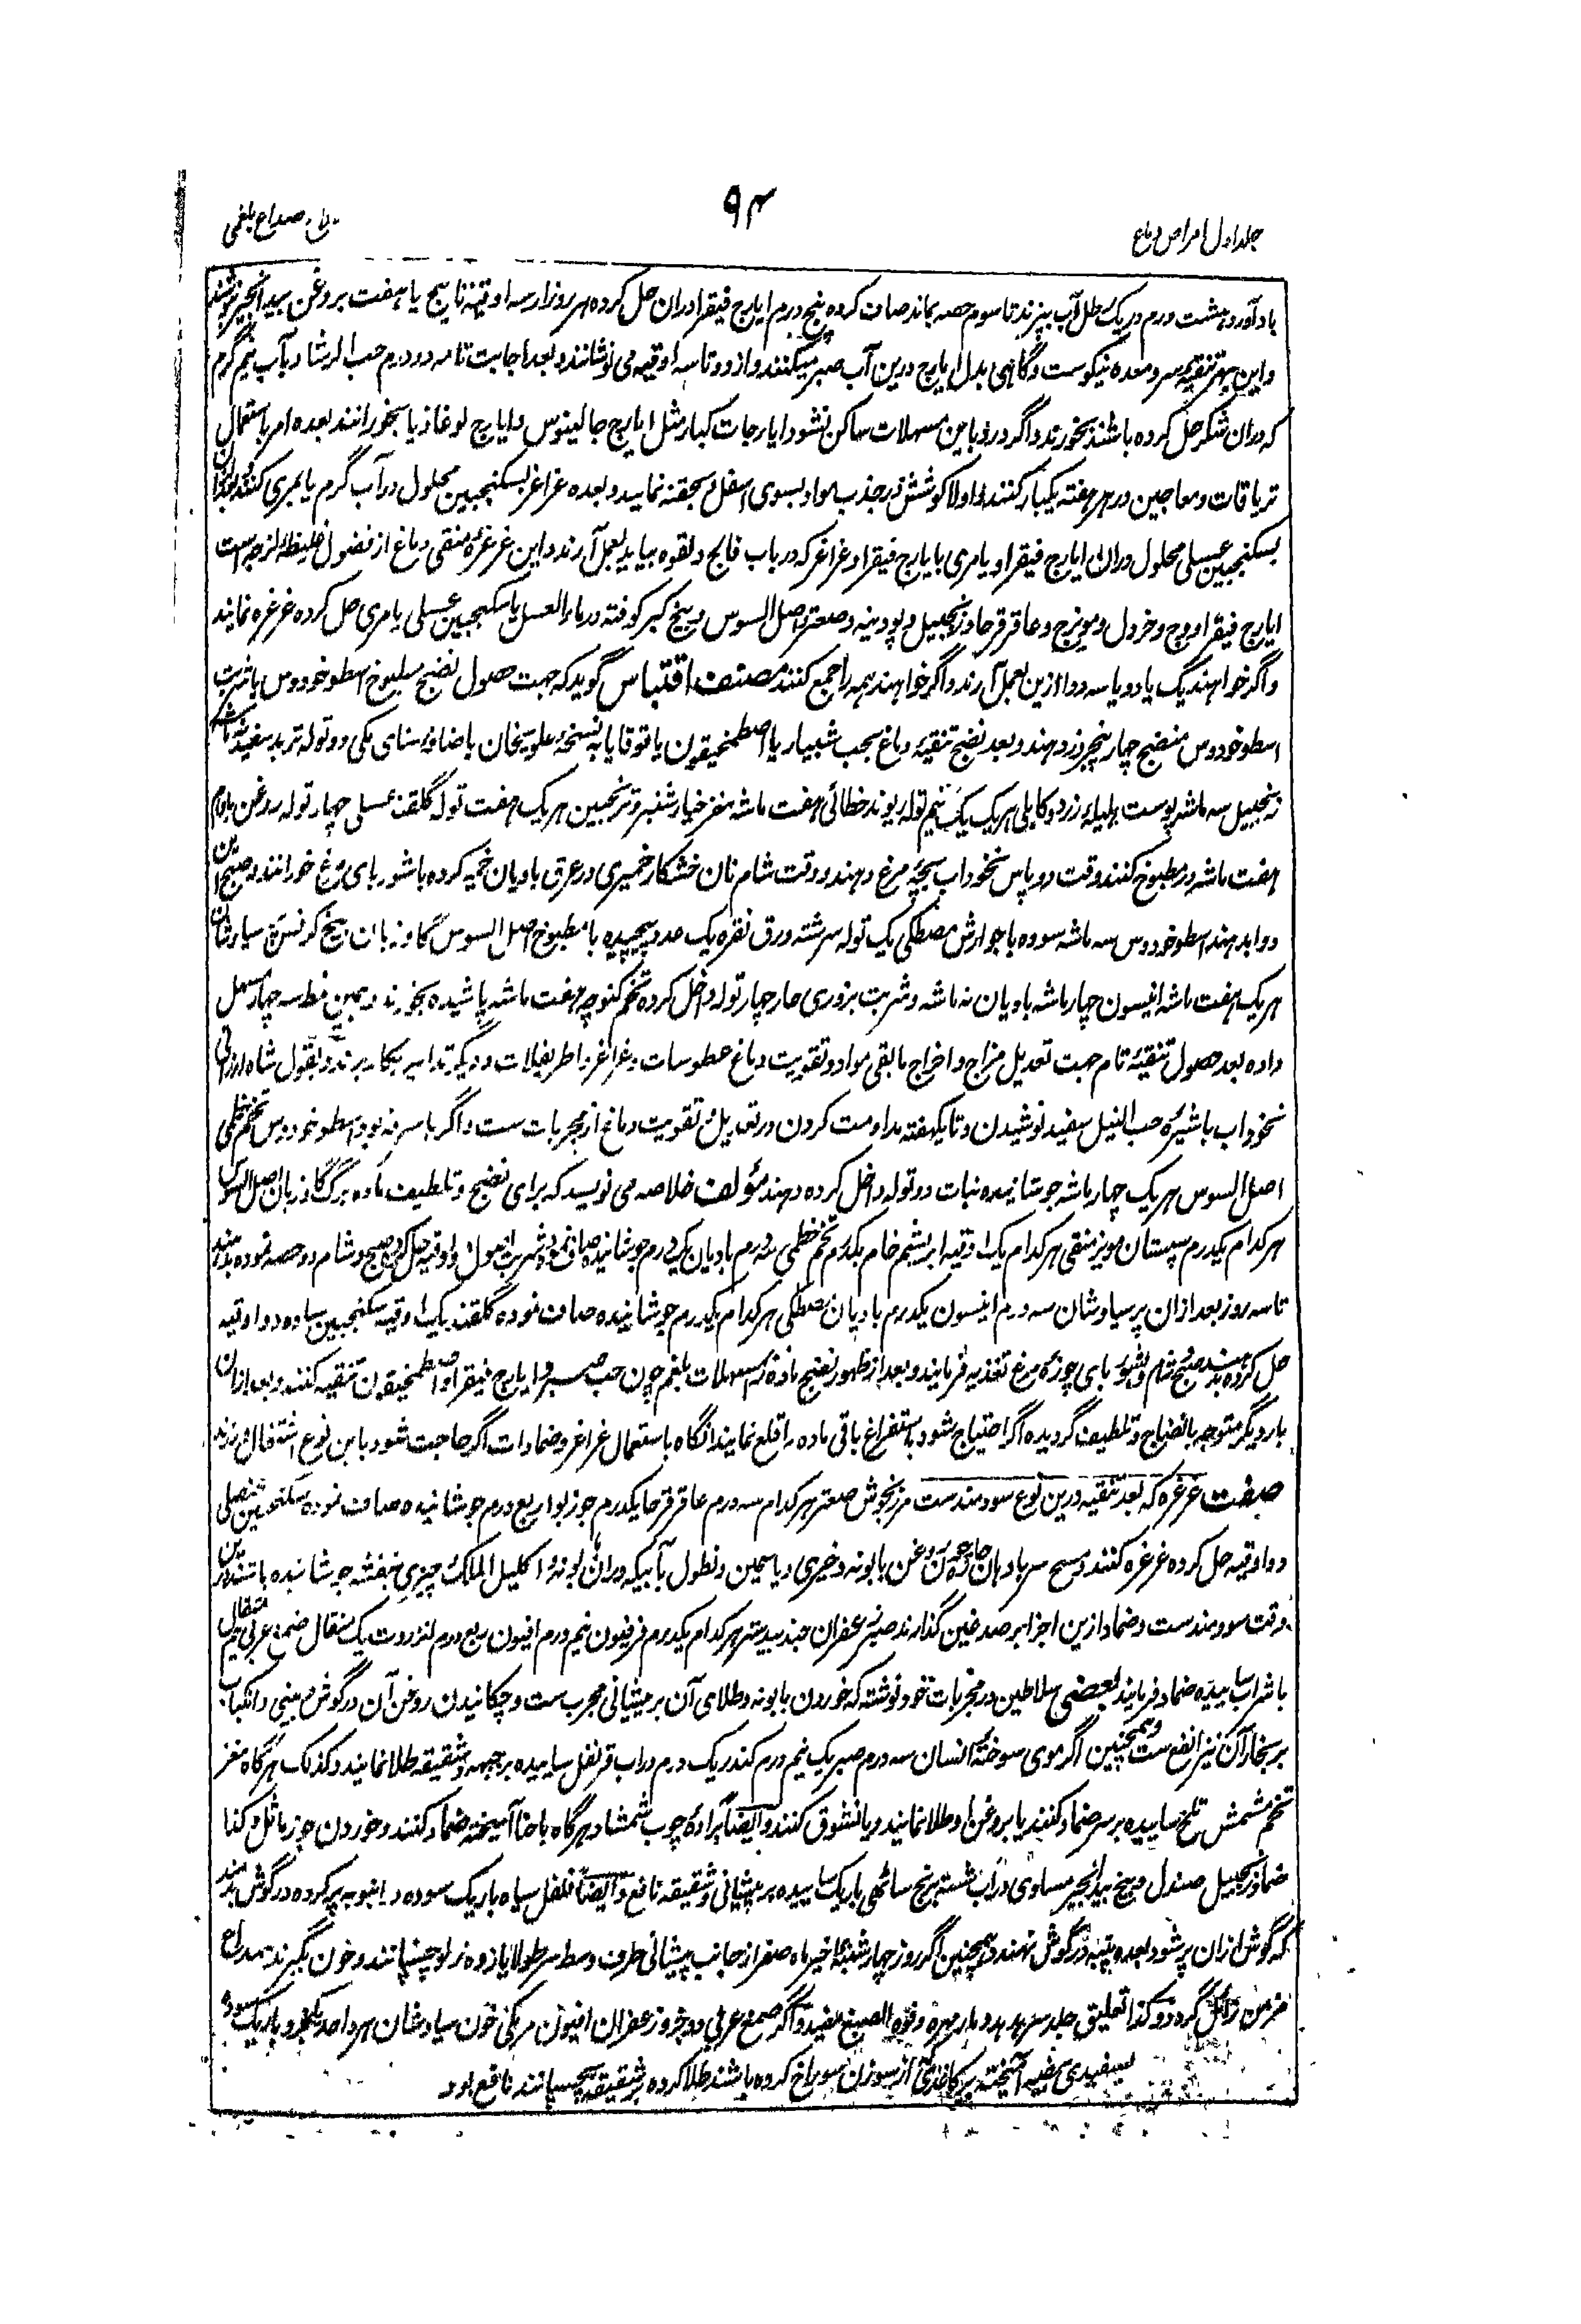 جلد اول امراض دماغ
۹۴
صداع بلغمی
بادآورد هشت درم در یک رطل آب بپزند تا سوم حصه بماند صاف کرده پنج درم ایارج فیقرا دران حل کرده هر روز ازسه اوقیه تا پنج یا هفت بروغن بیدانجیر بنوشند
و این بهر تنقیه سر و معده نیکوست و گاهی بدل ایارج درین آب صبر میکنند و از دو تا سه اوقیه می نوشانند و بعد اجابت تامه دو درم حب الرشاد بآب نیم گرم
که دران شکر حل کرده باشند بخورند و اگر درد باین مسهلات ساکن نشود ایارجات کبار مثل ایارج جالینوس و ایارج لوغاذیا بخورانند بعده امر باستعمال
تریاقات و معاجین در هر هفته یکبار کنند و اولا کوشش در جذب مواد بسوی اسفل بحقنه نمایند و بعده غراغر بسکنجبین محلول در آب گرم یا بمری کنند
بسکنجبین عسلی محلول دران ایارج فیقرا و یا مری با ایارج فیقرا و غراغر که در باب فالج و لقوه بیاید بعمل آرند و این غرغره منقی دماغ از فضول غلیظه لزجه است
ایارج فیقرا و وج و خردل و مویزج و عاقرقرحا و زنجبیل و پودینه و صعتر و اصل السوس و بیخ کبر کوفته در ماء العسل یا سکنجبین عسلی یا مری حل کرده غرغره نمایند
و اگر خواهند یک یا دو یا سه دوا ازین بعمل آرند و اگر خواهند همه را جمع کنند مصنف اقتباس گوید که جهت حصول نضج مطبوخ اسطوخودوس یا شربت
اسطوخودوس منضج چهار پنج روز دهند و بعد نضج تنقیه دماغ بحب شبیار یا اصطمخیقون یا قوقایا به نسخه علویخان باضافه سنای مکی دو توله تربد سفید نه ماشه
زنجبیل سه ماشه پوست هلیله زرد و کابلی هر یک یک نیم توله ریوند خطائی هفت ماشه مغز خیارشنبر و ترنجبین هر یک هفت توله گلقند عسلی چهار توله روغن بادام
هفت ماشه در مطبوخ کنند وقت دو پاس نخوداب بچه مرغ دهند و وقت شام نان خشکار خمیری در عرق بادیان خمیه کرده باشوربای مرغ خورانند و صبح این
دوا بدهند اسطوخودوس سه ماشه سوده با جوارش مصطکی یک توله سرشته ورق نقره یک عدد پیچیده با مطبوخ اصل السوس گاوزبان بیخ کرفس پرسیاوشان
هر یک هفت ماشه انیسون چهار ماشه بادیان نه ماشه و شربت بزوری حار چهار توله داخل کرده تخم کنوچه هفت ماشه پاشیده بخورند و بهمین نمط سه چهار مسهل
داده بعد حصول تنقیه تام جهت تعدیل مزاج و اخراج مابقی مواد و تقویت دماغ عطوسات و غراغر و اطریفلات و دیگر تدابیر بکار برند و بقول شاه ارزانی
نخوداب با شیره حب النیل سفید نوشیدن و تا یکهفته مداومت کردن در تعدیل و تقویت دماغ از مجربات ست و اگر با سرفه بود اسطوخودوس تخم خطمی
اصل السوس هر یک چهار ماشه جوشانیده نبات دو توله داخل کرده دهند مؤلف خلاصه می نویسد که برای نضج و تلطیف ماده برگ گاوزبان اصل السوس
هر کدام یکدرم سپستان مویز منقی هر کدام یک اوقیه ابریشم خام یکدرم تخم خطمی دو درم بادیان یکدرم جوشانیده صاف نموده شربت اصول دو اوقیه حل کرده صبح و شام دو حصه نموده بدهند
تا سه روز بعد ازان پرسیاوشان سه درم انیسون یکدرم بادیان مصطکی هر کدام یکدرم جوشانیده صاف نموده گلقند یک اوقیه سکنجبین ساده دو اوقیه
حل کرده بدهند صبح و شام و بشوربای چوزه مرغ تغذیه فرمایند و بعد از ظهور نضج ماده بمسهلات بلغم چون حب صبر و ایارج فیقرا و اصطمخیقون تنقیه کنند و بعد ازان
بار دیگر متوجه بانضاج و تلطیف گردیده اگر احتیاج شود باستفراغ باقی ماده را قلع نمایند آنگاه باستعمال غراغر و ضمادات اگر حاجت شود باین نوع اشتغال ورزند
صفت غرغره که بعد تنقیه درین نوع سودمندست مرزنجوش صعتر هر کدام سه درم عاقرقرحا یکدرم جوزبوا ربع درم جوشانیده صاف نموده سکنجبین عنصلی
دو اوقیه حل کرده غرغره کنند و مسح سر بادهان حاره چون روغن بابونه و خیری و یاسمین و نطول بآبیکه دران بابونه اکلیل الملک چیزی بنفشه جوشانیده باشند درین
وقت سودمندست و ضماد ازین اجزا بر صدغین گذارند صبر زعفران جندبیدستر هر کدام یکدرم فرفیون نیم درم افیون ربع درم انزروت یک مثقال صمغ عربی نیم مثقال
با شراب ساییده ضماد فرمایند بعضی سلاطین در مجربات خود نوشته که خوردن بابونه و طلای آن بر پیشانی مجرب ست و چکانیدن روغن آن در گوش و بینی و انکباب
بر بخار آن نیز انفع ست و همچنین اگر موی سوخته انسان سه درم صبر یک نیم درم کندر یک درم در آب قرنفل ساییده بر جبهه و شقیقه طلا نمایند و کذلک هرگاه مغز
تخم مشمش تلخ ساییده بر سر ضماد کنند یا بروغن او طلا نمایند و یا نشوق کنند و ایضا براده چوب شمشاد هرگاه با حنا آمیخته ضماد کنند و خوردن جوز ماثل و کذا
ضماد زنجبیل صندل و بیخ بیدانجیر مساوی در آب شسته برنج ساٹھی باریک ساییده بر پیشانی و شقیقه نافع و ایضا فلفل سیاه باریک سوده در انبوبه پر کرده در گوش بدمند
که گوش ازان پر شود بعده پنبه در گوش نهند و همچنین اگر روز چهارشنبه اخیر ماه صفر از جانب پیشانی طرف وسط سر طولا یازده زلو چسپانند و خون بگیرند صداع
مزمن زائل گردد و کذا تعلیق جلد سر هدهد و مار مهره و فوه الصبغ مفید و اگر صمغ عربی دو جزو زعفران افیون مرمکی خون سیاوشان هر واحد یکجزو باریک سوده
بسفیدی بیضه آمیخته بر کاغذی که از سوزن سوراخ کرده باشند طلا کرده بر شقیقه بچسپانند نافع بود